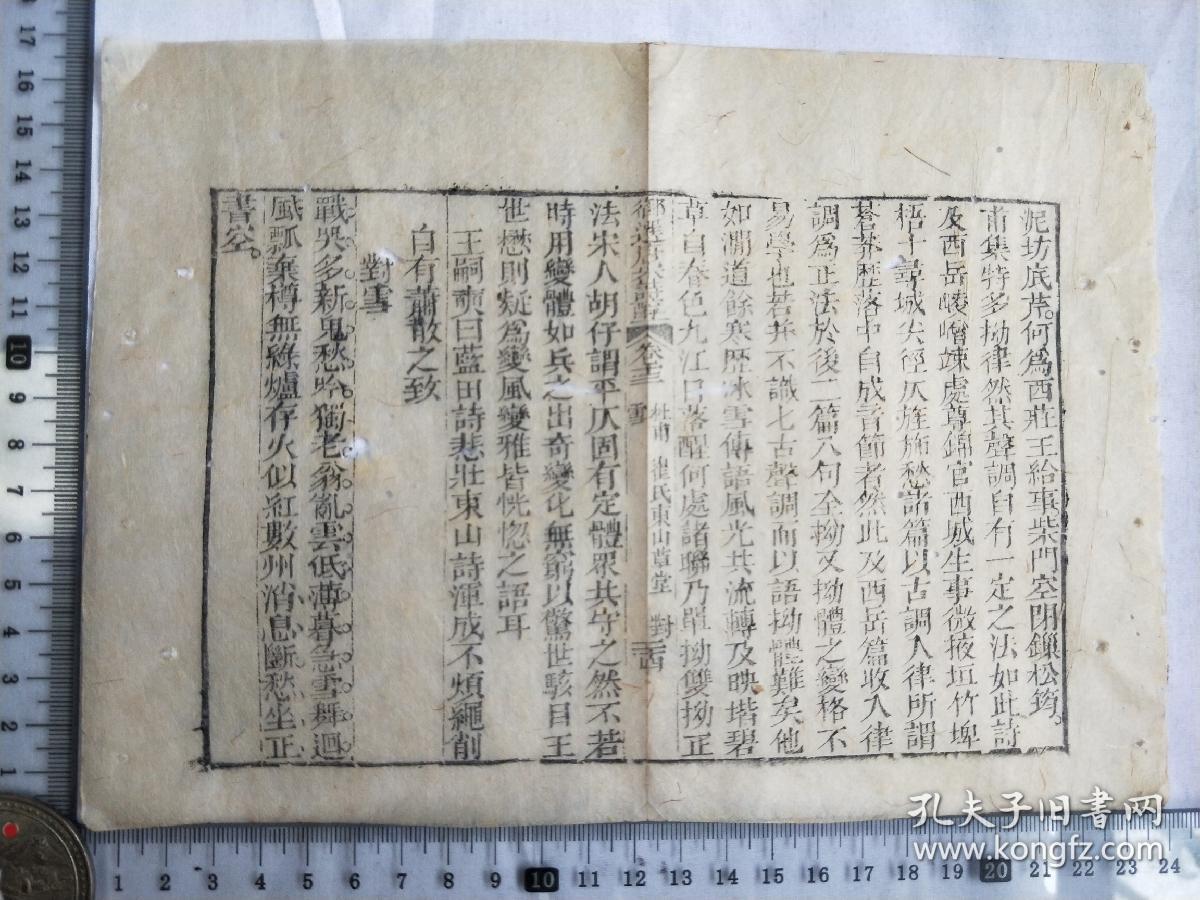 泥坊底芹何爲西莊王給事柴門空閉鎖松筠
甫集特多拗律然其聲調自有一定之法如此詩
及西岳崚嶒竦處尊錦官西城生事微掖垣竹埤
梧十尋城尖徑仄旌旆愁諸篇以古調入律所謂
蒼莽歷落中自成音節者然此及西岳篇收入律
調爲正法於後二篇八句全拗又拗體之變格不
易學也若并不識七古聲調而以語拗體難矣他
如澗道餘寒歷冰雪傳語風光共流轉及映堦碧
草自春色九江日落醒何處諸聯乃單拗雙拗正
御選唐宋詩醇 卷十三 杜甫 崔氏東山草堂 對雪
法宋人胡仔謂平仄固有定體眾共守之然不若
時用變體如兵之出奇變化無窮以驚世駭目王
世懋則疑爲變風變雅皆恍惚之語耳
王嗣奭曰藍田詩悲壯東山詩渾成不煩繩削
自有蕭散之致
對雪
戰哭多新鬼愁吟獨老翁亂雲低薄暮急雪舞迴
風瓢棄樽無綠爐存火似紅數州消息斷愁坐正
書空
17
16
15
14
13
12
11
10
9
8
7
6
5
4
3
2
1
1 2 3 4 5 6 7 8 9 10 11 12 13 14 15 16 17 18 19 20 21 22 23 24
孔夫子旧书网
www.kongfz.com